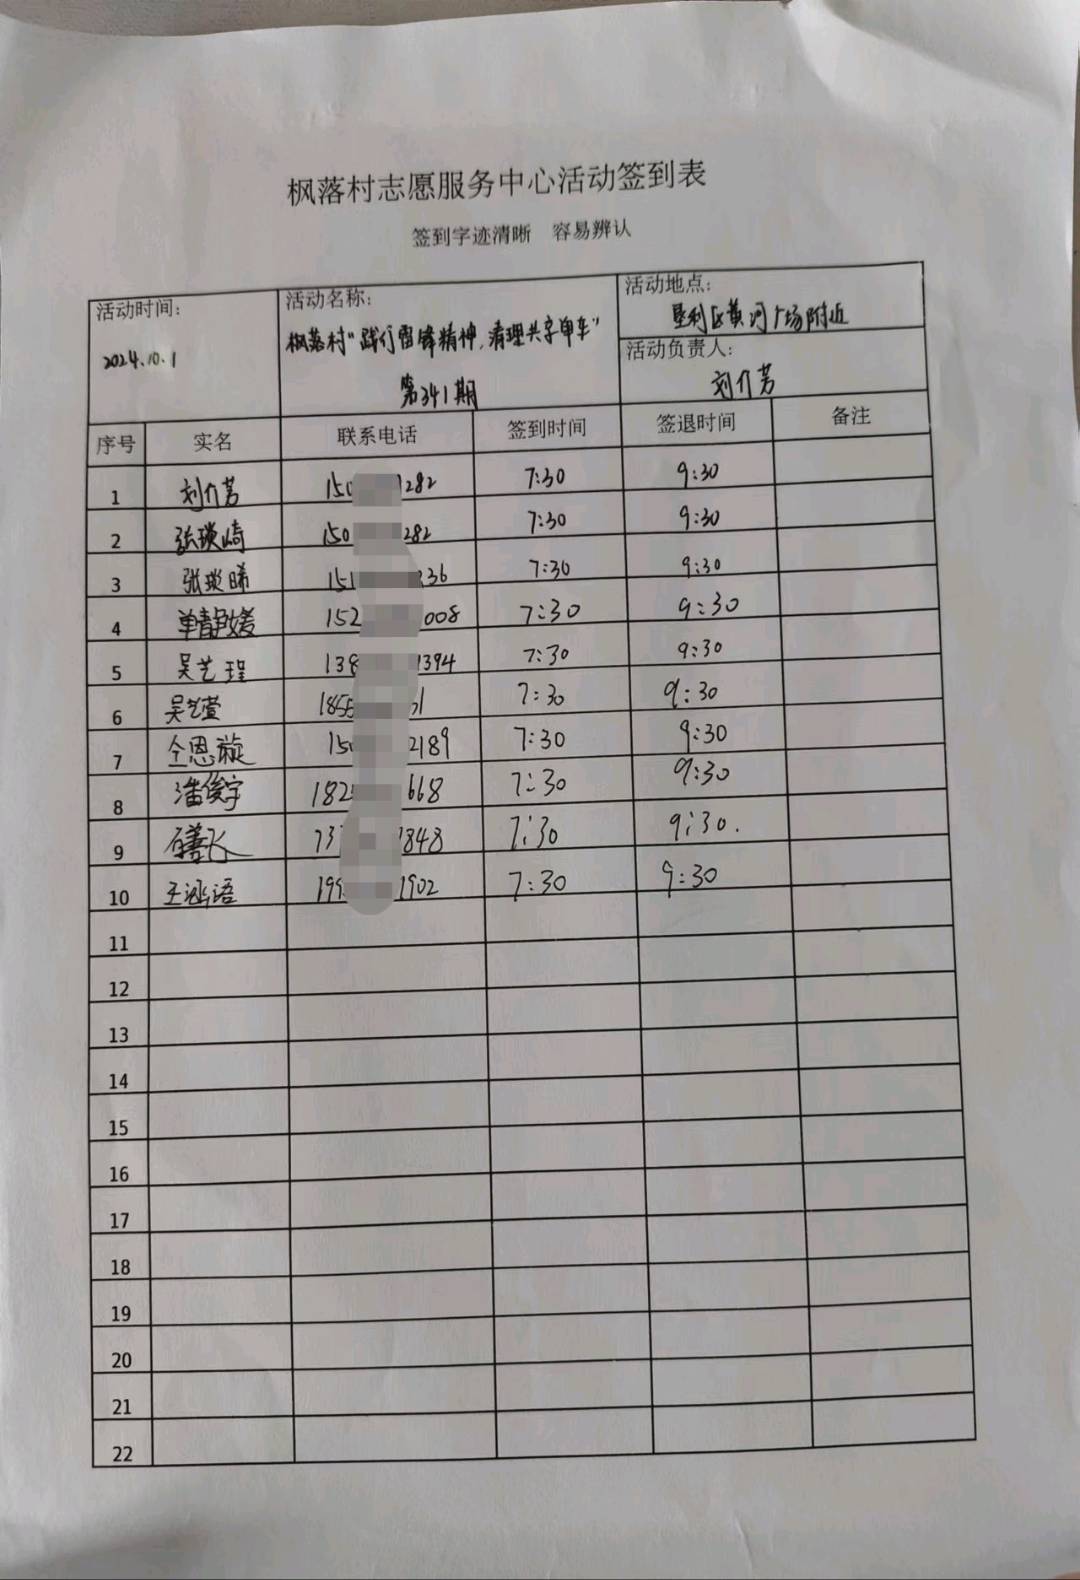 枫落村志愿服务中心活动签到表
签到字迹清晰 容易辨认
活动时间: 2024.10.1
活动名称: 枫落村"践行雷锋精神,清理共享单车"
第341期
活动地点: 垦利区黄河广场附近
活动负责人: 刘介芳
序号 实名 联系电话 签到时间 签退时间 备注
1 刘介芳 150 1282 7:30 9:30
2 张琰崎 150 282 7:30 9:30
3 张琰晞 151 336 7:30 9:30
4 单静媛 152 008 7:30 9:30
5 吴艺珵 138 1394 7:30 9:30
6 吴艺萱 1855 61 7:30 9:30
7 仝恩漩 150 2189 7:30 9:30
8 潘俊宇 182 668 7:30 9:30
9 737 1848 7:30 9:30.
10 王涵语 199 1902 7:30 9:30
11
12
13
14
15
16
17
18
19
20
21
22